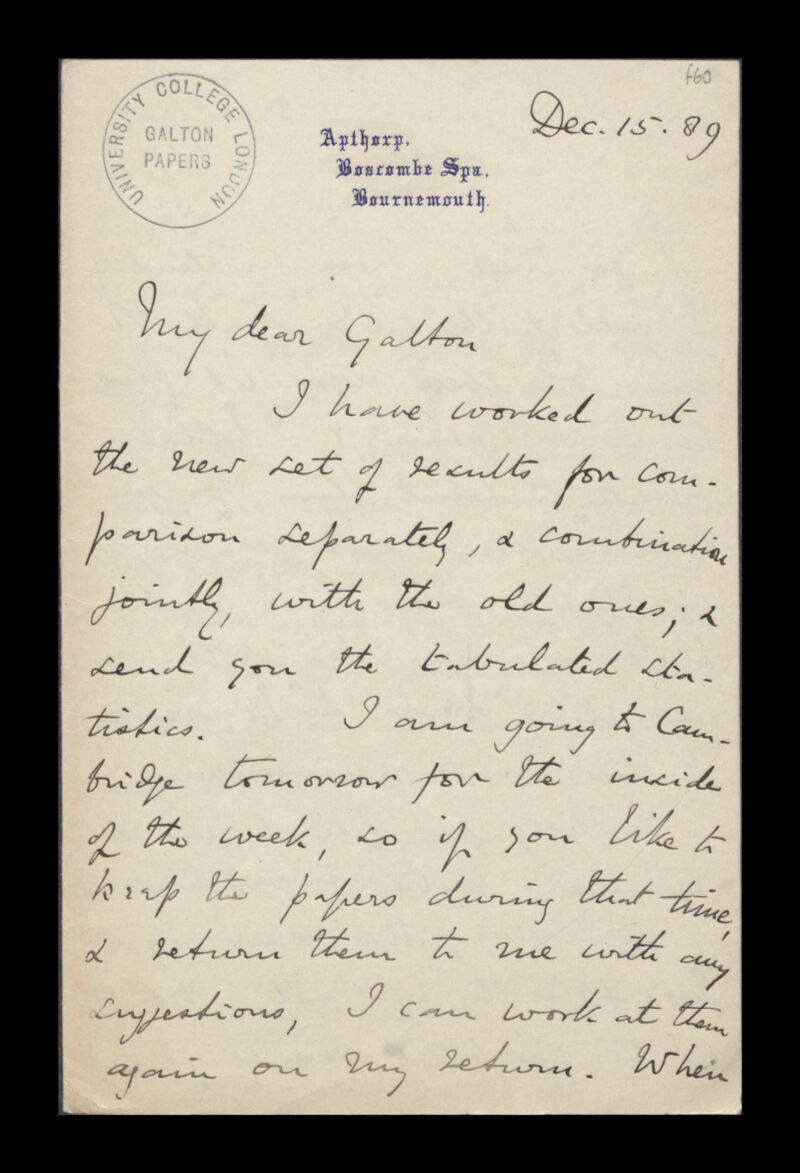 f60
UNIVERSITY COLLEGE LONDON
GALTON
PAPERS
Apthorp,
Boscombe Spa,
Bournemouth.
Dec. 15. 89
My dear Galton
I have worked out
the new set of results for com-
parison separately, & combination
jointly, with the old ones; &
send you the tabulated sta-
tistics. I am going to Cam-
bridge tomorrow for the inside
of the week, so if you like to
keep the papers during that time,
& return them to me with any
suggestions, I can work at them
again on my return. When